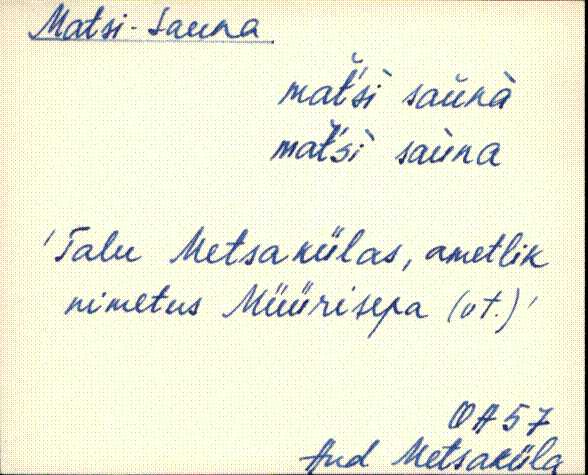 Matsi-Sauna
mat̆'sì saŭnà
mat̆'sì saùna
'Talu Metsakülas, ametlik
nimetus Müürisepa (vt.)'
OA 57
And Metsaküla